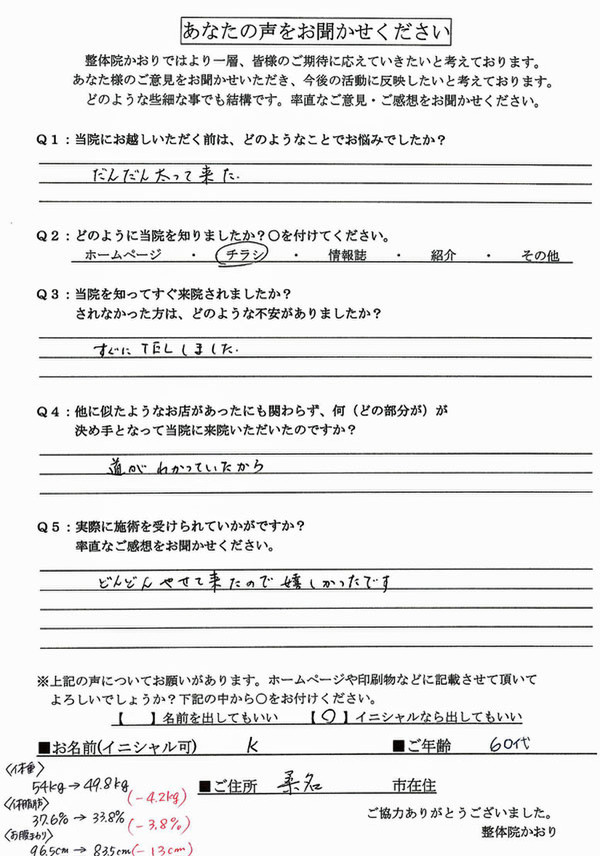 あなたの声をお聞かせください
整体院かおりではより一層、皆様のご期待に応えていきたいと考えております。
あなた様のご意見をお聞かせいただき、今後の活動に反映したいと考えております。
どのような些細な事でも結構です。率直なご意見・ご感想をお聞かせください。
Q1：当院にお越しいただく前は、どのようなことでお悩みでしたか？
だんだん太って来た.
Q2：どのように当院を知りましたか？〇を付けてください。
ホームページ ・ チラシ ・ 情報誌 ・ 紹介 ・ その他
Q3：当院を知ってすぐ来院されましたか？
されなかった方は、どのような不安がありましたか？
すぐにTELしました.
Q4：他に似たようなお店があったにも関わらず、何（どの部分が）が
決め手となって当院に来院いただいたのですか？
道がわかっていたから
Q5：実際に施術を受けられていかがですか？
率直なご感想をお聞かせください。
どんどんやせて来たので嬉しかったです
※上記の声についてお願いがあります。ホームページや印刷物などに記載させて頂いて
よろしいでしょうか？下記の中から〇をお付けください。
【　】名前を出してもいい 【〇】イニシャルなら出してもいい
■お名前(イニシャル可) K ■ご年齢 60代
〈体重〉
54kg→49.8kg (-4.2kg)
■ご住所 桑名 市在住
〈体脂肪〉
37.6%→33.8% (-3.8%)
ご協力ありがとうございました。
整体院かおり
〈お腹まわり〉
96.5cm→83.5cm (-13cm)